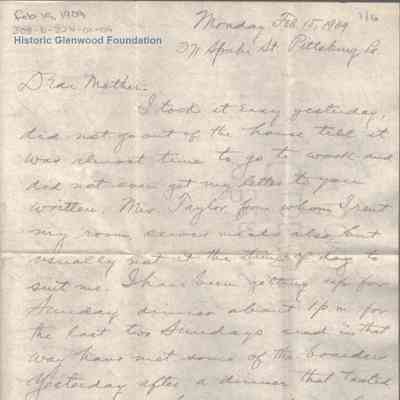 Feb 15, 1909
Monday Feb. 15, 1909
1/6
Historic Glenwood Foundation
St. Pittsburg Pa.
Dear Mother:
I took it easy yesterday,
did not go out of the house till it
was almost time to go to work and
did not even get my letter to you
written. Mrs. Taylor from whom I rent
my room serves meals also but
usually not at the time of day to
suit me. I have been getting up for
Sunday dinner about 1 p.m. for
the last two Sundays and in that
way have met some of the boarders
Yesterday after a dinner that tasted